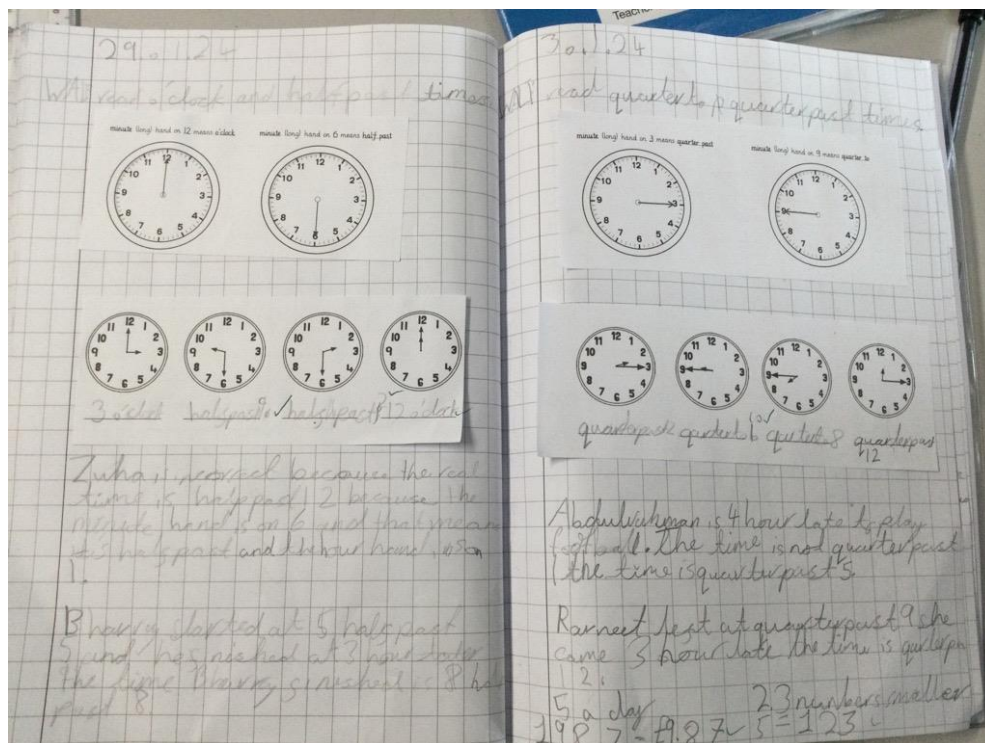 Teache
29.1.24
WALT read o'clock and half past times
minute (long) hand on 12 means o'clock
minute (long) hand on 6 means half past
3 o'clock half past 9 ✓ half past 2 12 o'clock
Zuha is correct because the real
time is half past 12 because the
minute hand is on 6 and that mean
its half past and the hour hand is on
1.
Bharry started at 5 half past
5 and has nished at 3 hour later
the time Bharry finished is 8 ha
past 8
30.1.24
WALT read quarter to quarter past times
minute (long) hand on 3 means quarter past
minute (long) hand on 9 means quarter to
quarter past quarter to quarter to 8 quarter past
12
is 4 hour late to play
football. The time is not quarter past
1 the time is quarter past 5.
left at quarter past 9 she
came 3 hour late the time is
12.
5 a day
23 numbers smaller